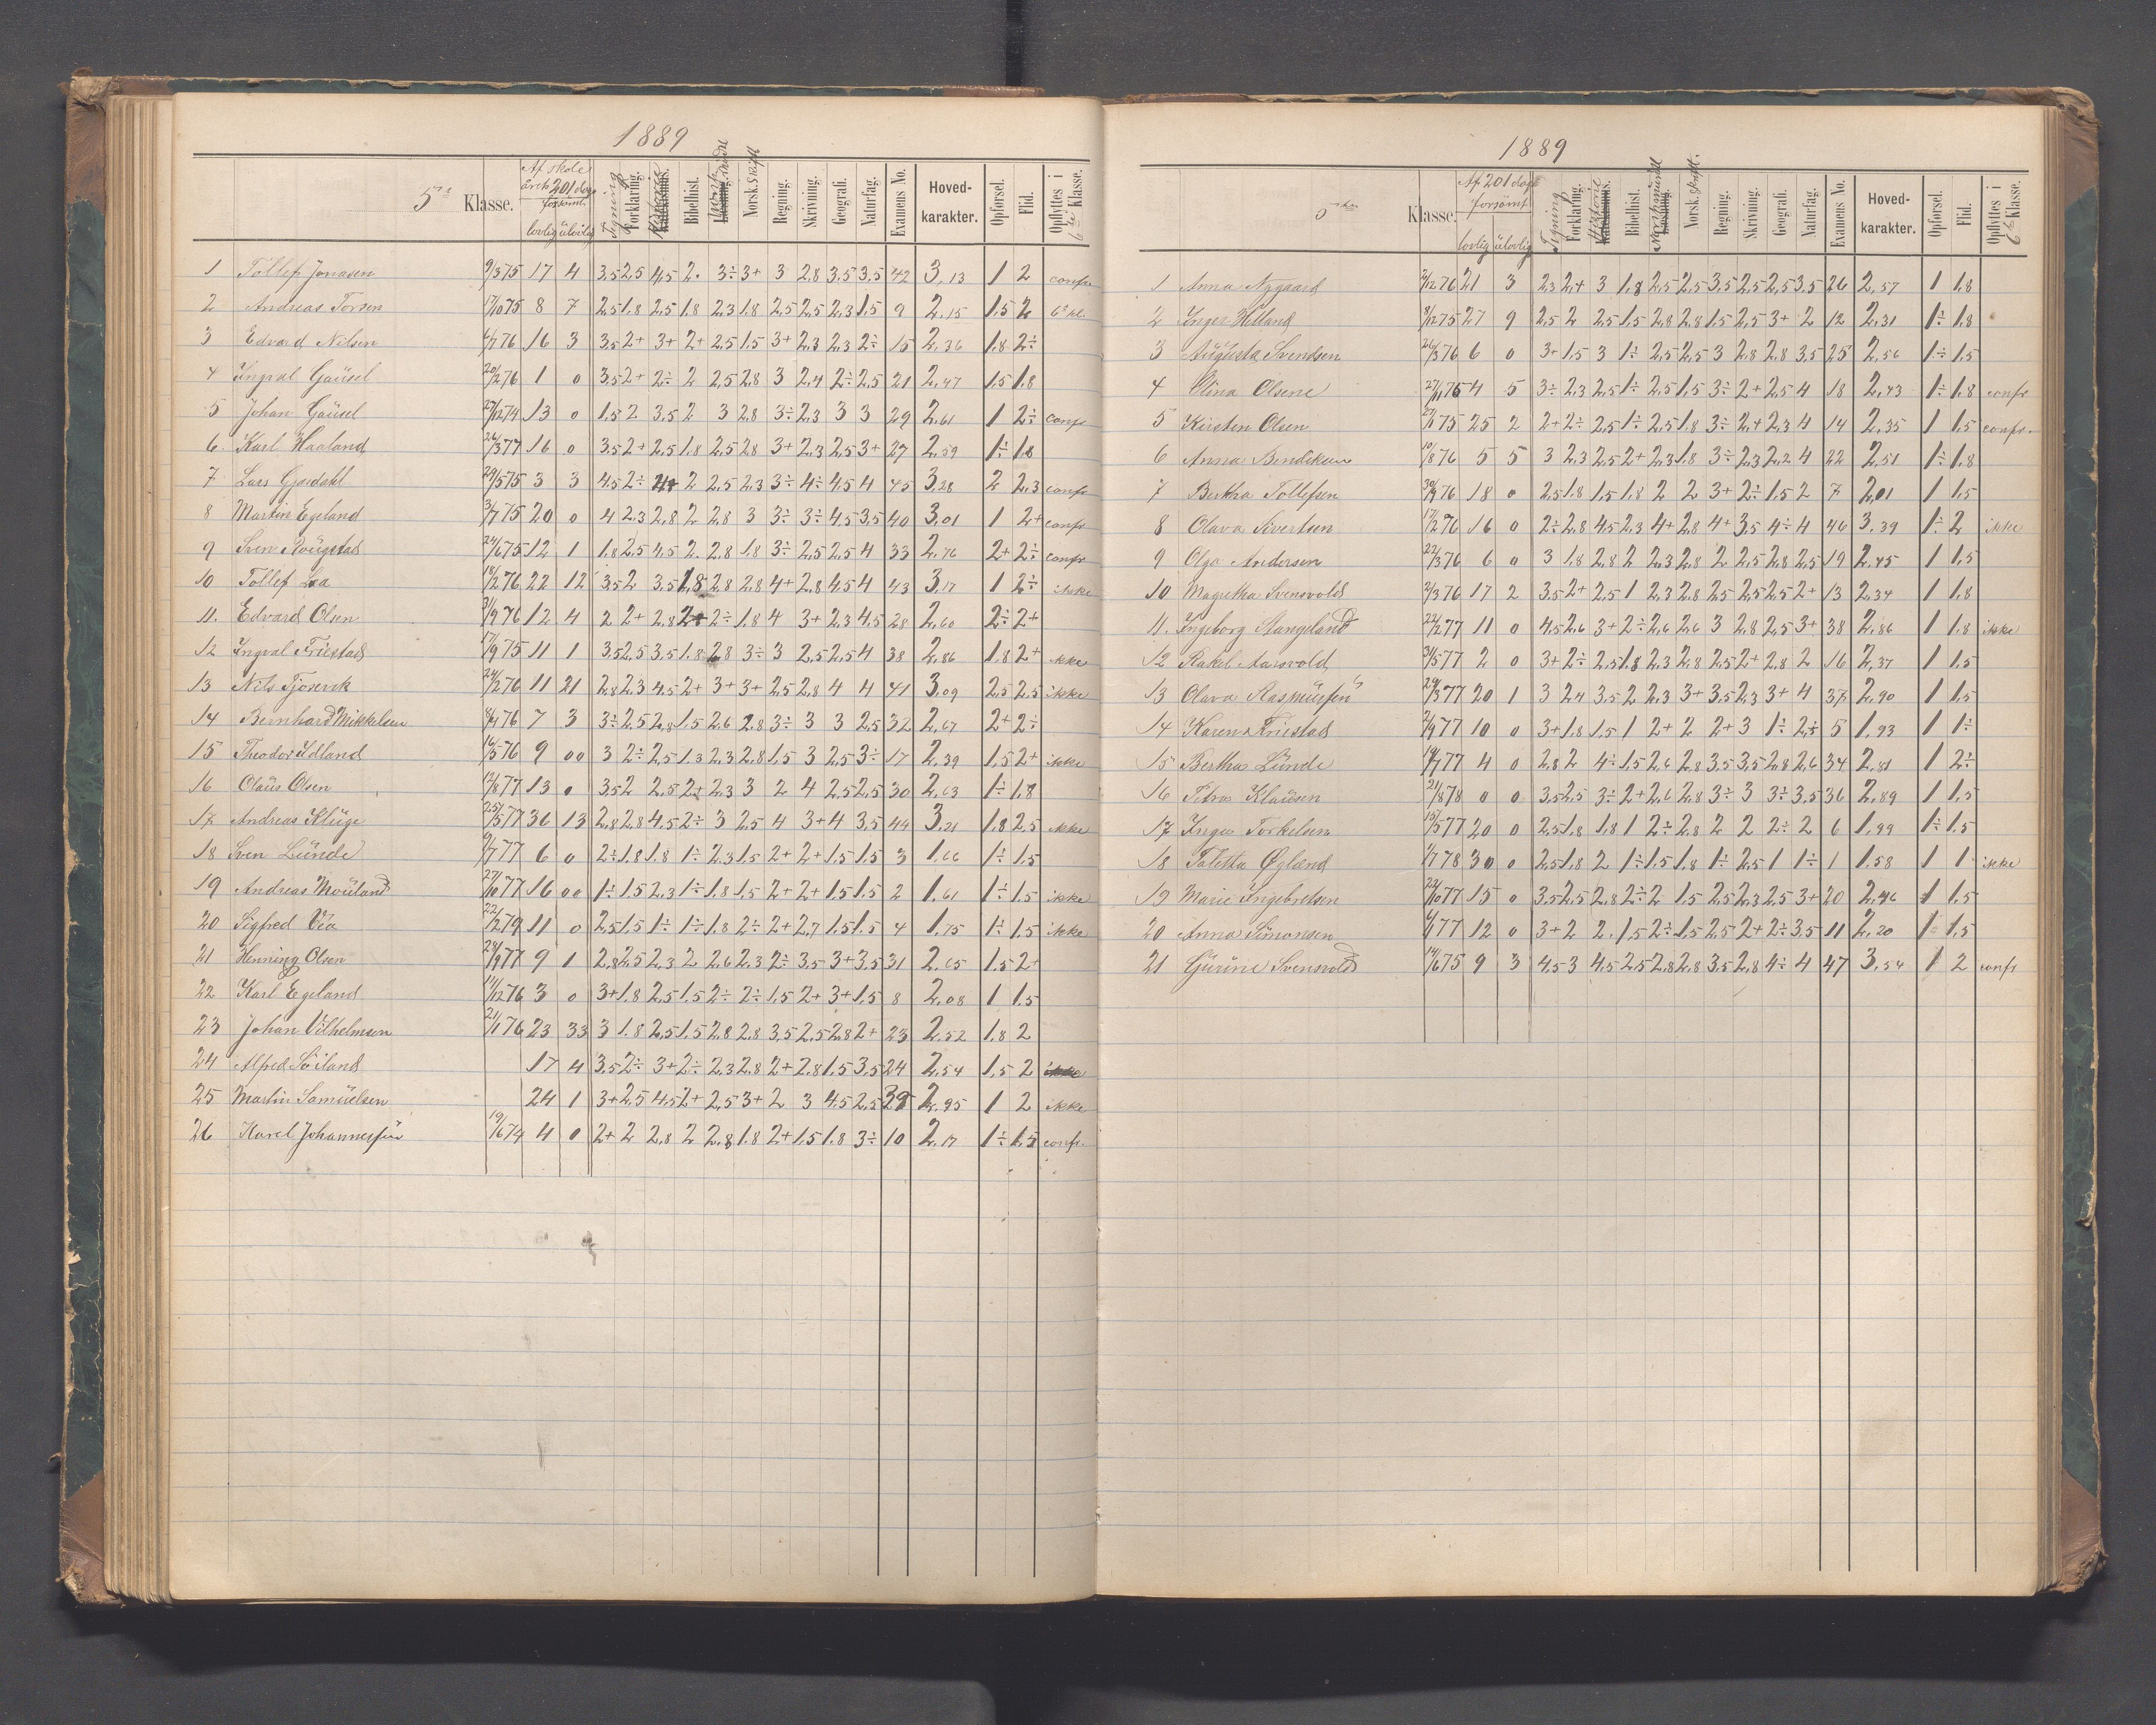 1889
5te Klasse. Af skoleårets 201 dage forsömt lovlig ulovlig Tegning Forklaring. Historie Katekismus. Bibelhist. Norsk mündtl Læsning. Norsk. Skriftl Regning. Skrivning. Geografi. Naturfag. Examens No. Hoved-karakter. Opførsel. Flid. Opflyttes i 6te Klasse.
1 Tollef Jonasen 9/3 75 17 4 3,5 2,5 4,5 2. 3÷ 3+ 3 2,8 3,5 3,5 42 3,13 1 2 confr
2 Andreas Torsen 17/10 75 8 7 2,5 1,8 2,5 1,8 2,3 1,8 2,5 2,5 2,3 1,5 9 2,15 1,5 2 6te kl.
3 Edvard Nilsen 76 16 3 3,5 2+ 3+ 2+ 2,5 1,5 3+ 2,3 2,3 2÷ 15 2,36 1,8 2÷
4 Ingval Gaüsel 20/2 76 1 0 3,5 2+ 2÷ 2 2,5 2,8 3 2,4 2÷ 2,5 21 2,47 1,5 1,8
5 Johan Gaüsel 27/12 74 13 0 1,5 2 3,5 2 3 2,8 3÷ 2,3 3 3 29 2,61 1 2÷ confr
6 Karl Haaland 26/3 77 16 0 3,5 2+ 2,5 1,8 2,5 2,8 3+ 2,3 2,5 3+ 27 2,59 1÷ 1,8
7 Lars Gjosdahl 29/5 75 3 3 4,5 2÷ 4+ 2 2,5 2,3 3÷ 4÷ 4,5 4 45 3,28 2 2,3 confr
8 Martin Egeland 3/7 75 20 0 4 2,3 2,8 2 2,8 3 3÷ 3÷ 4,5 3,5 40 3,01 1 2+ confr
9 Sven Rougstad 24/6 75 12 1 1,8 2,5 4,5 2. 2,8 1,8 3÷ 2,5 2,5 4 33 2,76 2+ 2÷ confr
10 Tollef Lea 18/2 76 22 12 3,5 2 3,5 1,8 2,8 2,8 4+ 2,8 4,5 4 43 3,17 1 2÷ ikke
11. Edvard Olsen 31/9 76 12 4 2 2+ 2,8 2+ 2÷ 1,8 4 3+ 2,3 4,5 28 2,60 2÷ 2+
12 Ingval Friestad 17/9 75 11 1 3,5 2,5 3,5 1,8 2,8 3÷ 3 2,5 2,5 4 38 2,86 1,8 2+ ikke
13 Nils Tjosevik 24/2 76 11 21 2,8 2,3 4,5 2+ 3+ 3+ 2,5 2,8 4 4 41 3,09 2,5 2,5 ikke
14 Bernhard Mikkelsen 8/4 76 7 3 3÷ 2,5 2,8 1,5 2,6 2,8 3÷ 3 3 2,5 32 2,67 2+ 2÷
15 Theodor Idland 16/5 76 9 00 3 2÷ 2,5 1,3 2,3 2,8 1,5 3 2,5 3÷ 17 2,39 1,5 2+ ikke
16 Olaüs Olsen 12/8 77 13 0 3,5 2 2,5 2+ 2,3 3 2 4 2,5 2,5 30 2,63 1÷ 1,8
17 Andreas Klüge 25/5 77 36 13 2,8 2,8 4,5 2÷ 3 2,5 4 3+ 4 3,5 44 3,21 1,8 2,5 ikke
18 Sven Lünde 9/7 77 6 0 2÷ 1,8 1,8 1÷ 2,3 1,5 2+ 2+ 1,5 1,5 3 1,66 1÷ 1,5
19 Andreas Moüland 27/10 77 16 00 1÷ 1,5 2,3 1÷ 1,8 1,5 2+ 2+ 1,5 1,5 2 1,61 1÷ 1,5 ikke
20 Sigfred Via 22/2 79 11 0 2,5 1,5 1÷ 1÷ 1,8 2÷ 2+ 2,7 1,5 1,5 4 1,75 1÷ 1,5 ikke
21 Henning Olsen 28/9 77 9 1 2,8 2,5 2,3 2 2,6 2,3 2÷ 3,5 3+ 3,5 31 2,65 1,5 2+
22 Karl Egeland 11/12 76 3 0 3+ 1,8 2,5 1,5 2÷ 2÷ 1,5 2+ 3+ 1,5 8 2,08 1 1,5
23 Johan Vilhelmsen 21/1 76 23 33 3 1,8 2,5 1,5 2,8 2,8 3,5 2,5 2,8 2+ 23 2,52 1,8 2
24 Alfred Söiland 17 4 3,5 2÷ 3+ 2÷ 2,3 2,8 2+ 2,8 1,5 3,5 24 2,54 1,5 2 ikke
25 Martin Samüelsen 24 1 3+ 2,5 4,5 2+ 2,5 3+ 2 3 4,5 2,5 39 2,95 1 2 ikke
26 Karel Johannessen 19/6 74 4 0 2+ 2 2,8 2 2,8 1,8 2+ 1,5 1,8 3÷ 10 2,17 1÷ 1,5 confr.
1889
5te Klasse. Af 201 dage forsömt lovlig ulovlig Tegning Forklaring. Historie Katekismus. Bibelhist. Norsk mündtl Læsning. Norsk. skriftl. Regning. Skrivning. Geografi. Naturfag. Examens No. Hoved-karakter. Opførsel. Flid. Opflyttes i 6te Klasse.
1 Anna Nygaard 2/12 76 21 3 2,3 2,4 3 1,8 2,5 2,5 3,5 2,5 2,5 3,5 26 2,57 1 1,8
2 Inger Helland 8/12 75 27 9 2,5 2 2,5 1,5 2,8 2,8 1,5 2,5 3+ 2 12 2,31 1÷ 1,8
3 Aügüsta Svendsen 26/3 76 6 0 3+ 1,5 3 1÷ 2,5 2,5 3 2,8 2,8 3,5 25 2,56 1÷ 1,5
4 Olina Olsene 27/1 75 4 5 3÷ 2,3 2,5 1÷ 2,5 1,5 3÷ 2+ 2,5 4 18 2,43 1÷ 1,8 confr
5 Kirsten Olsen 27/1 75 25 2 2+ 2÷ 2,5 1÷ 2,5 1,8 3÷ 2+ 2,3 4 14 2,35 1 1,5 confr.
6 Anna Bendiksen 10/8 76 5 5 3 2,3 2,5 2+ 2,3 1,8 3÷ 2,3 2,2 4 22 2,51 1÷ 1,8
7 Bertha Tollefsen 30/9 76 18 0 2,5 1,8 1,5 1,8 2 2 3+ 2÷ 1,5 2 7 2,01 1 1,5
8 Olava Sivertsen 17/2 76 16 0 2÷ 2,8 4,5 2,3 4+ 2,8 4+ 3,5 4÷ 4 46 3,39 1÷ 2 ikke
9 Olga Andersen 22/3 76 6 0 3 1,8 2,8 2 2,3 2,8 2 2,5 2,8 2,5 19 2,45 1 1,5
10 Magretha Svensvold 2/3 76 17 2 3,5 2+ 2,5 1 2,3 2,8 2,5 2,5 2,5 2+ 13 2,34 1 1,8
11. Ingeborg Stangeland 22/2 77 11 0 4,5 2,6 3+ 2÷ 2,6 2,6 3 2,8 2,5 3+ 38 2,86 1 1,8 ikke
12 Rakel Aarsvold 31/5 77 2 0 3+ 2÷ 2,5 1,8 2,3 2,8 2,5 2+ 2,8 2 16 2,37 1 1,5
13 Olava Rasmüssen 29/3 77 20 1 3 2,4 3,5 2 2,3 3+ 3,5 2,3 3+ 4 37 2,90 1 1,5
14 Karen Friestad 2/9 77 10 0 3+ 1,8 1,5 1 2+ 2 2+ 3 1÷ 2,5 5 1,93 1 1÷
15 Bertha Lünde 14/7 77 4 0 2,8 2 4÷ 1,5 2,6 2,8 3,5 3,5 2,8 2,6 34 2,81 1 2÷
16 Petra Klaüsen 21/8 78 0 0 3,5 2,5 3÷ 2+ 2,6 2,8 3÷ 3 3÷ 3,5 36 2,89 1 1,5
17 Inga Torkelsen 15/5 77 20 0 2,5 1,8 1,8 1 2÷ 2,8 2 2 2÷ 2 6 1,99 1÷ 1,5
18 Taletta Øgland 1/7 78 30 0 2,5 1,8 2 1÷ 1,5 1,8 1÷ 2,5 1 1÷ 1 1,58 1 1 ikke
19 Marie Ingebretsen 22/10 77 15 0 3,5 2,5 2,8 2÷ 2 1,5 2,5 2,3 2,5 3+ 20 2,46 1 1,5
20 Anna Simonsen 77 12 0 3+ 2 2. 1,5 2÷ 1,5 2,5 2+ 2÷ 3,5 11 2,20 1÷ 1,5
21 Gürine Svensvold 14/6 75 9 3 4,5 3 4,5 2,5 2,8 2,8 3,5 2,8 4÷ 4 47 3,54 1 2 confr